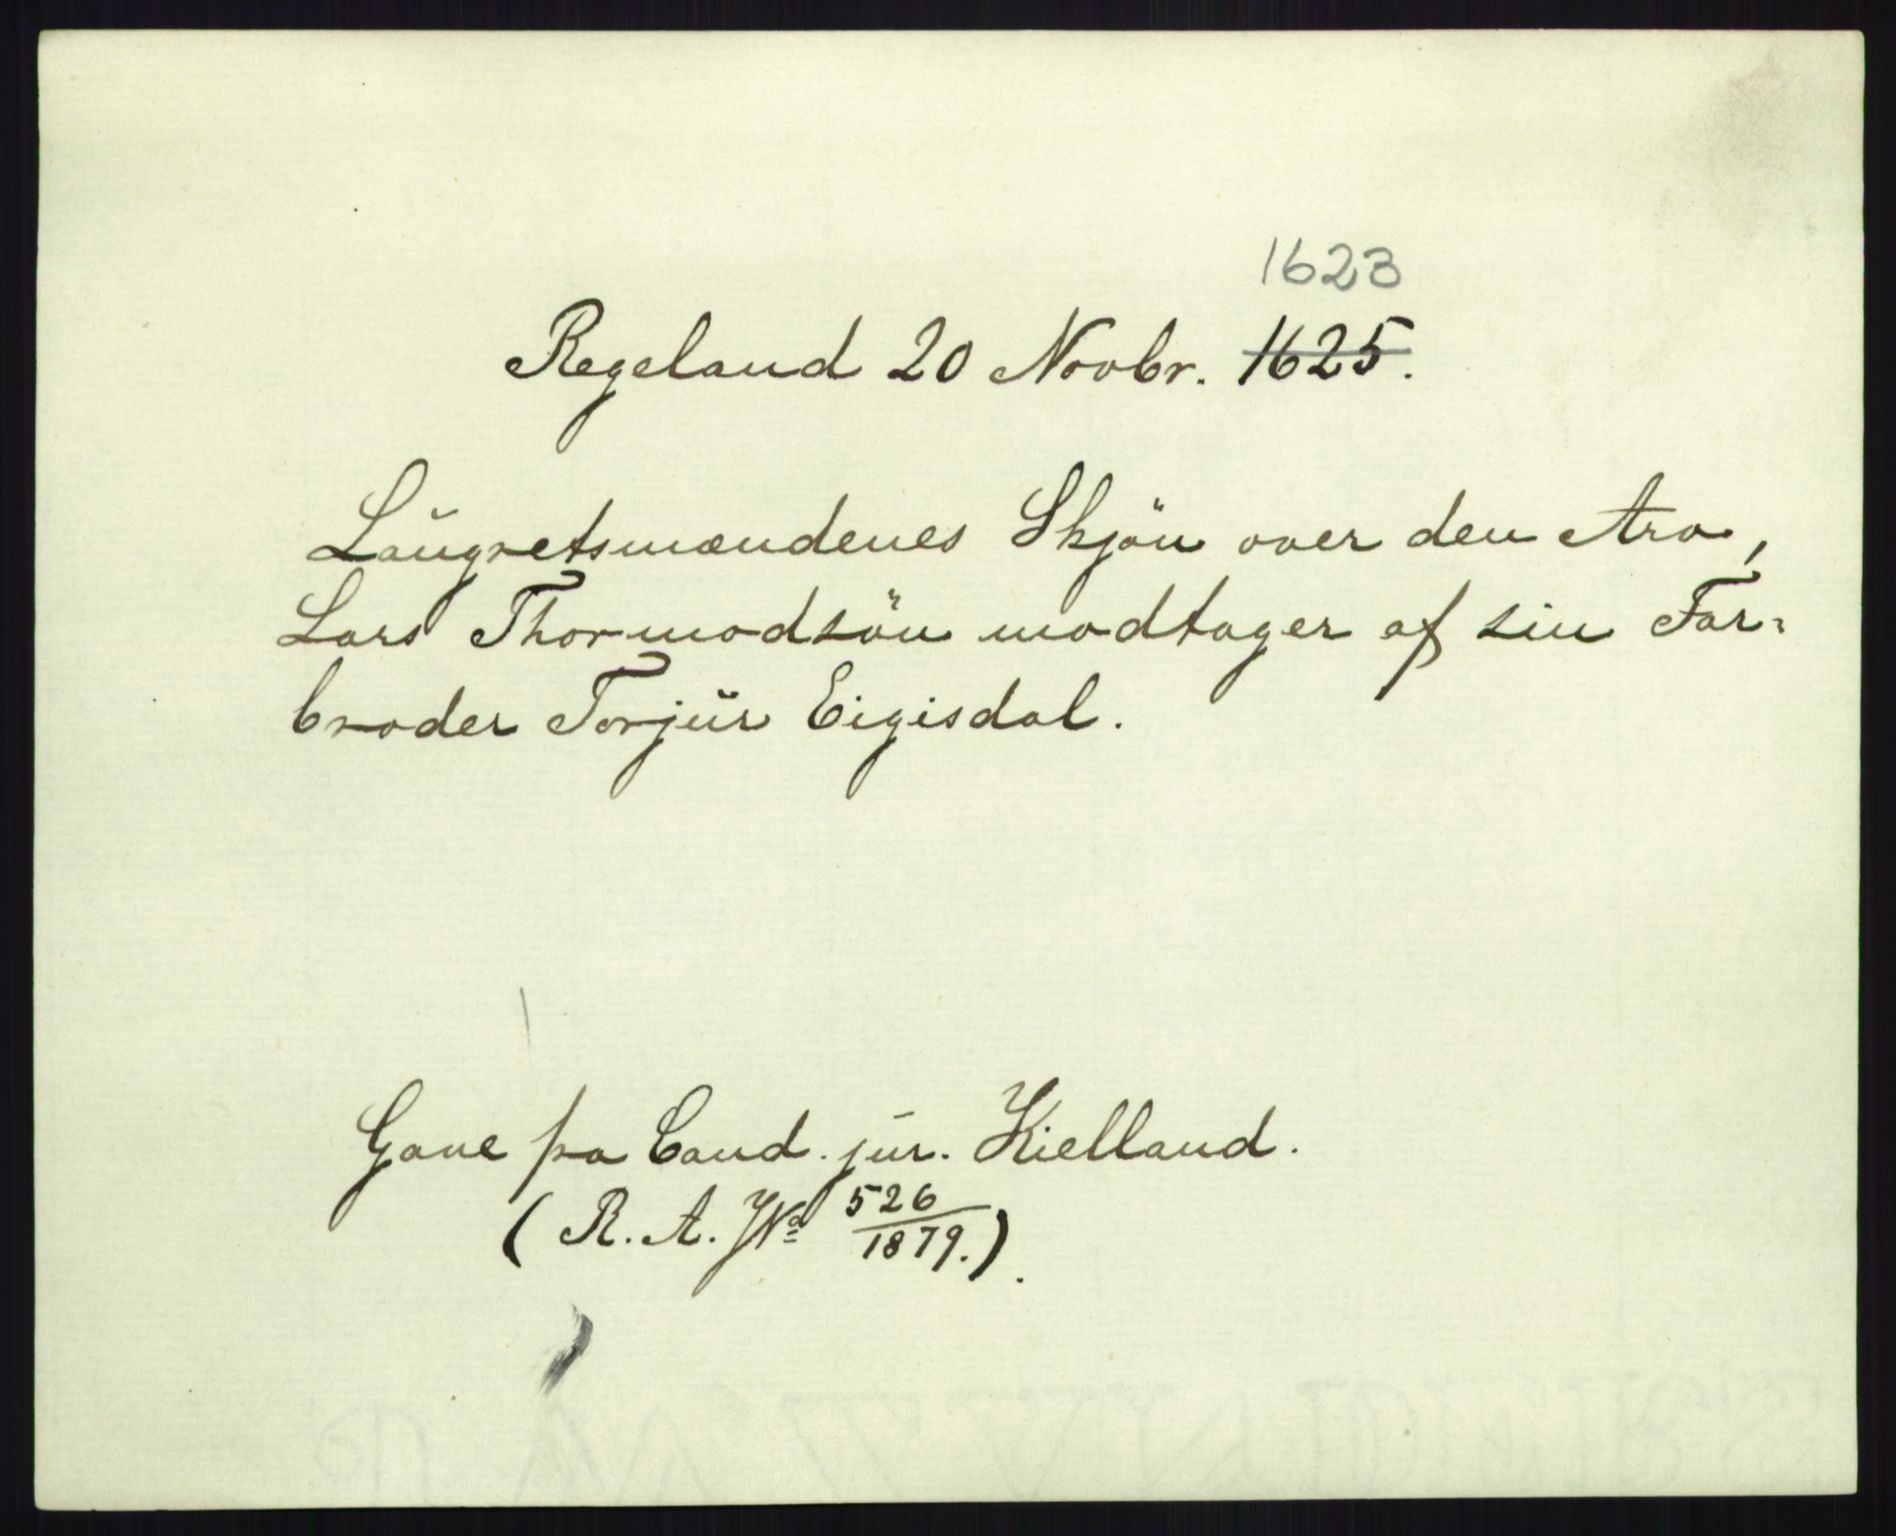 1623
Regeland 20 Novbr. 1625.
Laugretsmændenes Skjön over den Arv,
Lars Thormodsön modtager af sin Far-
broder Torjur Eigisdal.
Gave fra Cand. jur. Kielland.
(R. A. No 526/1879.).